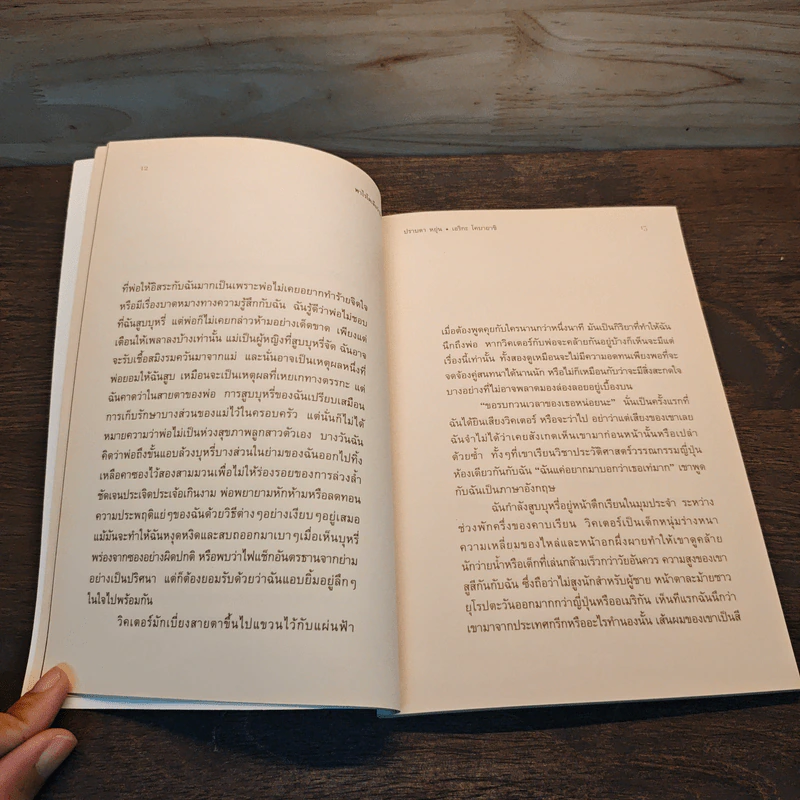 ๖๒
ปราบดา หยุ่น • เอริกะ โคบายาชิ
ที่พ่อให้อิสระกับฉันมากเป็นเพราะพ่อไม่เคยอยากทำร้ายจิตใจ
หรือมีเรื่องบาดหมางทางความรู้สึกกับฉัน ฉันรู้ดีว่าพ่อไม่ชอบ
ที่ฉันสูบบุหรี่ แต่พ่อก็ไม่เคยกล่าวห้ามอย่างเด็ดขาด เพียงแต่
เตือนให้เพลาลงบ้างเท่านั้น แม่เป็นผู้หญิงที่สูบบุหรี่จัด ฉันอาจ
จะรับเชื้อสมิงรมควันมาจากแม่ และนั่นอาจเป็นเหตุผลหนึ่งที่
พ่อยอมให้ฉันสูบ เหมือนจะเป็นเหตุผลที่เหยเกทางตรรกะ แต่
ฉันคาดว่าในสายตาของพ่อ การสูบบุหรี่ของฉันเปรียบเสมือน
การเก็บรักษาบางส่วนของแม่ไว้ในครอบครัว แต่นั่นก็ไม่ได้
หมายความว่าพ่อไม่เป็นห่วงสุขภาพลูกสาวตัวเอง บางวันฉัน
คิดว่าพ่อถึงขั้นแอบล้วงบุหรี่บางส่วนในย่ามของฉันออกไปทิ้ง
เหลือคาซองไว้สองสามมวนเพื่อไม่ให้ร่องรอยของการล่วงล้ำ
ชัดเจนประเจิดประเจ้อเกินงาม พ่อพยายามหักห้ามหรือลดทอน
ความประพฤติแย่ๆของฉันด้วยวิธีต่างๆอย่างเงียบๆอยู่เสมอ
แม้มันจะทำให้ฉันหงุดหงิดและสบถออกมาเบาๆเมื่อเห็นบุหรี่
พร่องจากซองอย่างผิดปกติ หรือพบว่าไฟแช็กอันตรธานจากย่าม
อย่างเป็นปริศนา แต่ก็ต้องยอมรับด้วยว่าฉันแอบยิ้มอยู่ลึกๆ
ในใจไปพร้อมกัน
วิคเตอร์มักเบี่ยงสายตาขึ้นไปแขวนไว้กับแผ่นฟ้า
เมื่อต้องพูดคุยกับใครนานกว่าหนึ่งนาที มันเป็นกิริยาที่ทำให้ฉัน
นึกถึงพ่อ หากวิคเตอร์กับพ่อจะคล้ายกันอยู่บ้างก็เห็นจะมีแต่
เรื่องนี้เท่านั้น ทั้งสองดูเหมือนจะไม่มีความอดทนเพียงพอที่จะ
จดจ้องคู่สนทนาได้นานนัก หรือไม่ก็เหมือนกับว่าจะมีสิ่งสะกดใจ
บางอย่างที่ไม่อาจพลาดมองล่องลอยอยู่เบื้องบน
“ขอรบกวนเวลาของเธอหน่อยนะ” นั่นเป็นครั้งแรกที่
ฉันได้ยินเสียงวิคเตอร์ หรือจะว่าไป อย่าว่าแต่เสียงของเขาเลย
ฉันจำไม่ได้ว่าเคยสังเกตเห็นเขามาก่อนหน้านั้นหรือเปล่า
ด้วยซ้ำ ทั้งๆที่เขาเรียนวิชาประวัติศาสตร์วรรณกรรมญี่ปุ่น
ห้องเดียวกันกับฉัน “ฉันแค่อยากมาบอกว่าเธอเท่มาก” เขาพูด
กับฉันเป็นภาษาอังกฤษ
ฉันกำลังสูบบุหรี่อยู่หน้าตึกเรียนในมุมประจำ ระหว่าง
ช่วงพักครึ่งของคาบเรียน วิคเตอร์เป็นเด็กหนุ่มร่างหนา
ความเหลี่ยมของไหล่และหน้าอกผึ่งผายทำให้เขาดูคล้าย
นักว่ายน้ำหรือเด็กที่เล่นกล้ามเร็วกว่าวัยอันควร ความสูงของเขา
สูสีกันกับฉัน ซึ่งถือว่าไม่สูงนักสำหรับผู้ชาย หน้าตาละม้ายชาว
ยุโรปตะวันออกมากกว่าญี่ปุ่นหรืออเมริกัน เห็นทีแรกฉันนึกว่า
เขามาจากประเทศกรีกหรืออะไรทำนองนั้น เส้นผมของเขาเป็นสี